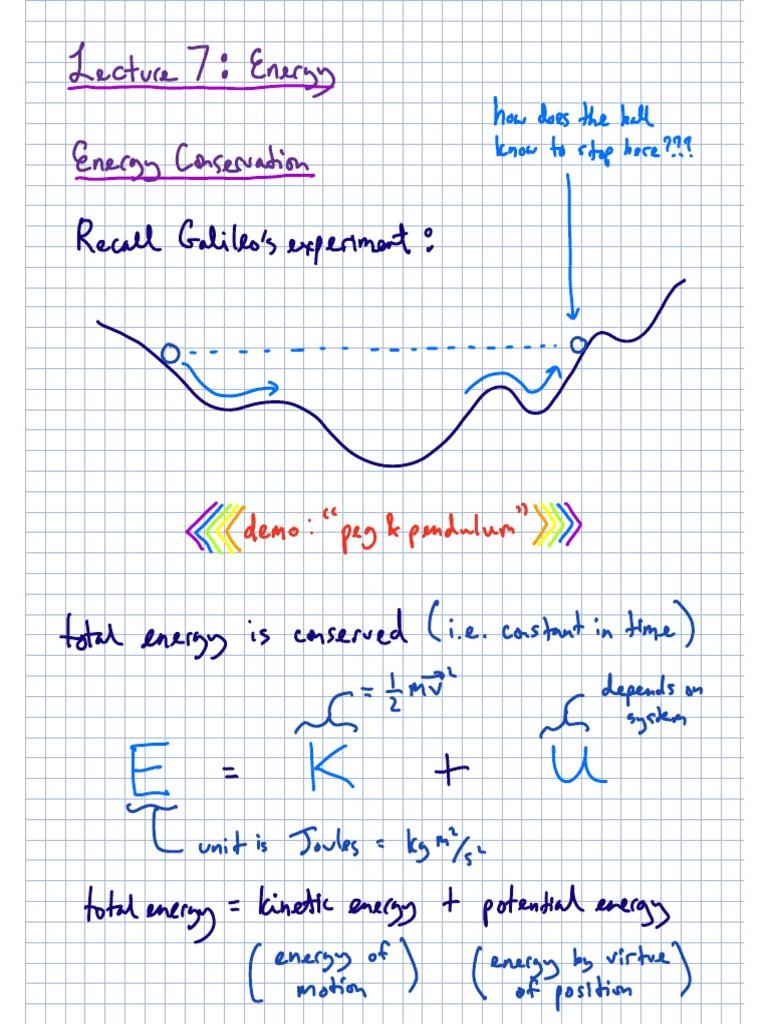 Lecture 7: Energy
how does the ball
know to stop here???
Energy Conservation
Recall Galileo's experiment:
demo: "peg & pendulum"
total energy is conserved (i.e. constant in time)
= 1/2 m v⃗²
depends on
system
E = K + U
unit is Joules = kg m²/s²
total energy = kinetic energy + potential energy
(energy of
motion)
(energy by virtue
of position)